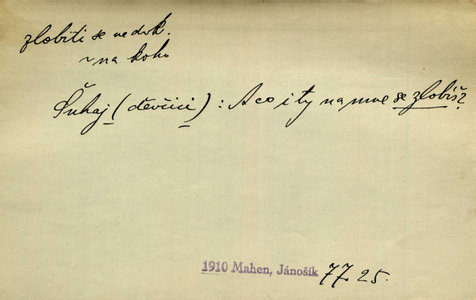 zlobiti se nedok.
~ na koho
Šuhaj (děvčici): A co i ty na mne se zlobíš?
1910 Mahen, Jánošík 77 25.